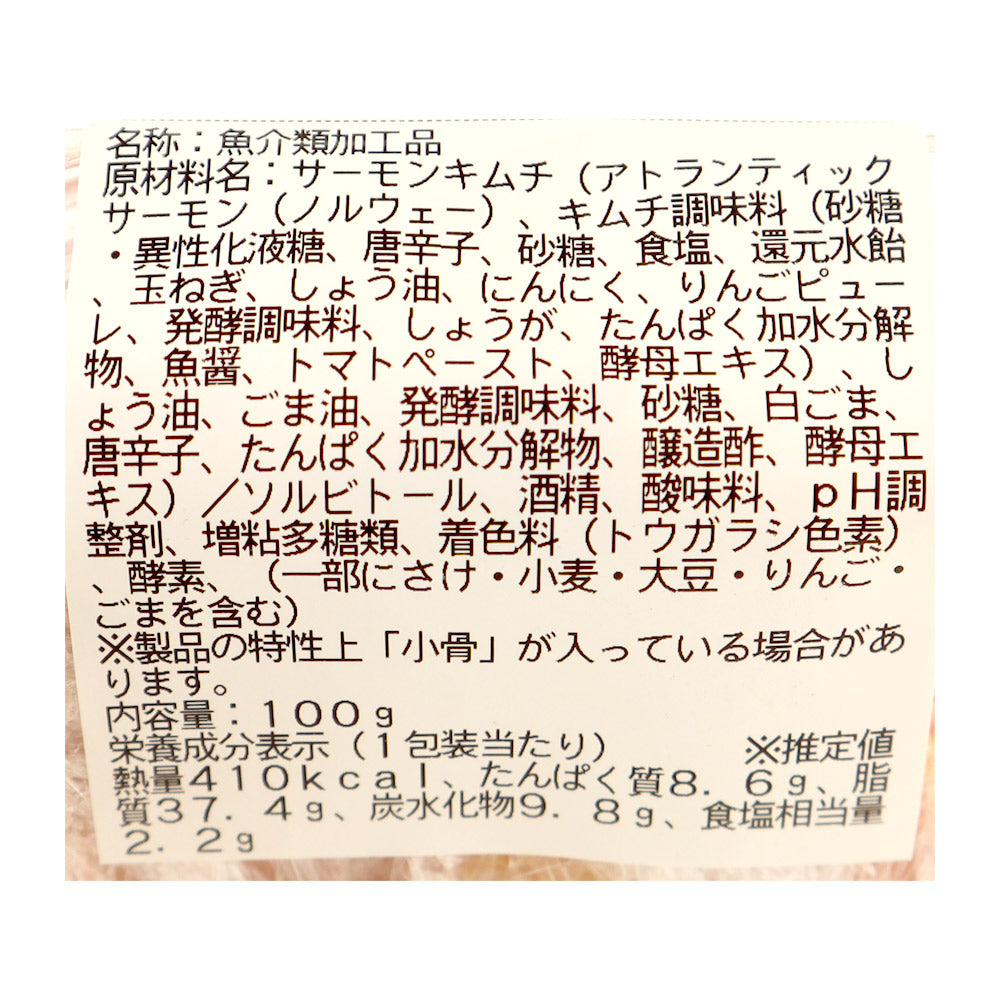 名称：魚介類加工品
原材料名：サーモンキムチ（アトランティック
サーモン（ノルウェー）、キムチ調味料（砂糖
・異性化液糖、唐辛子、砂糖、食塩、還元水飴
、玉ねぎ、しょう油、にんにく、りんごピュー
レ、発酵調味料、しょうが、たんぱく加水分解
物、魚醤、トマトペースト、酵母エキス）、し
ょう油、ごま油、発酵調味料、砂糖、白ごま、
唐辛子、たんぱく加水分解物、醸造酢、酵母エ
キス）／ソルビトール、酒精、酸味料、ｐＨ調
整剤、増粘多糖類、着色料（トウガラシ色素）
、酵素、（一部にさけ・小麦・大豆・りんご・
ごまを含む）
※製品の特性上「小骨」が入っている場合があ
ります。
内容量：１００ｇ
栄養成分表示（１包装当たり）　　　※推定値
熱量４１０ｋｃａｌ、たんぱく質８．６ｇ、脂
質３７．４ｇ、炭水化物９．８ｇ、食塩相当量
２．２ｇ